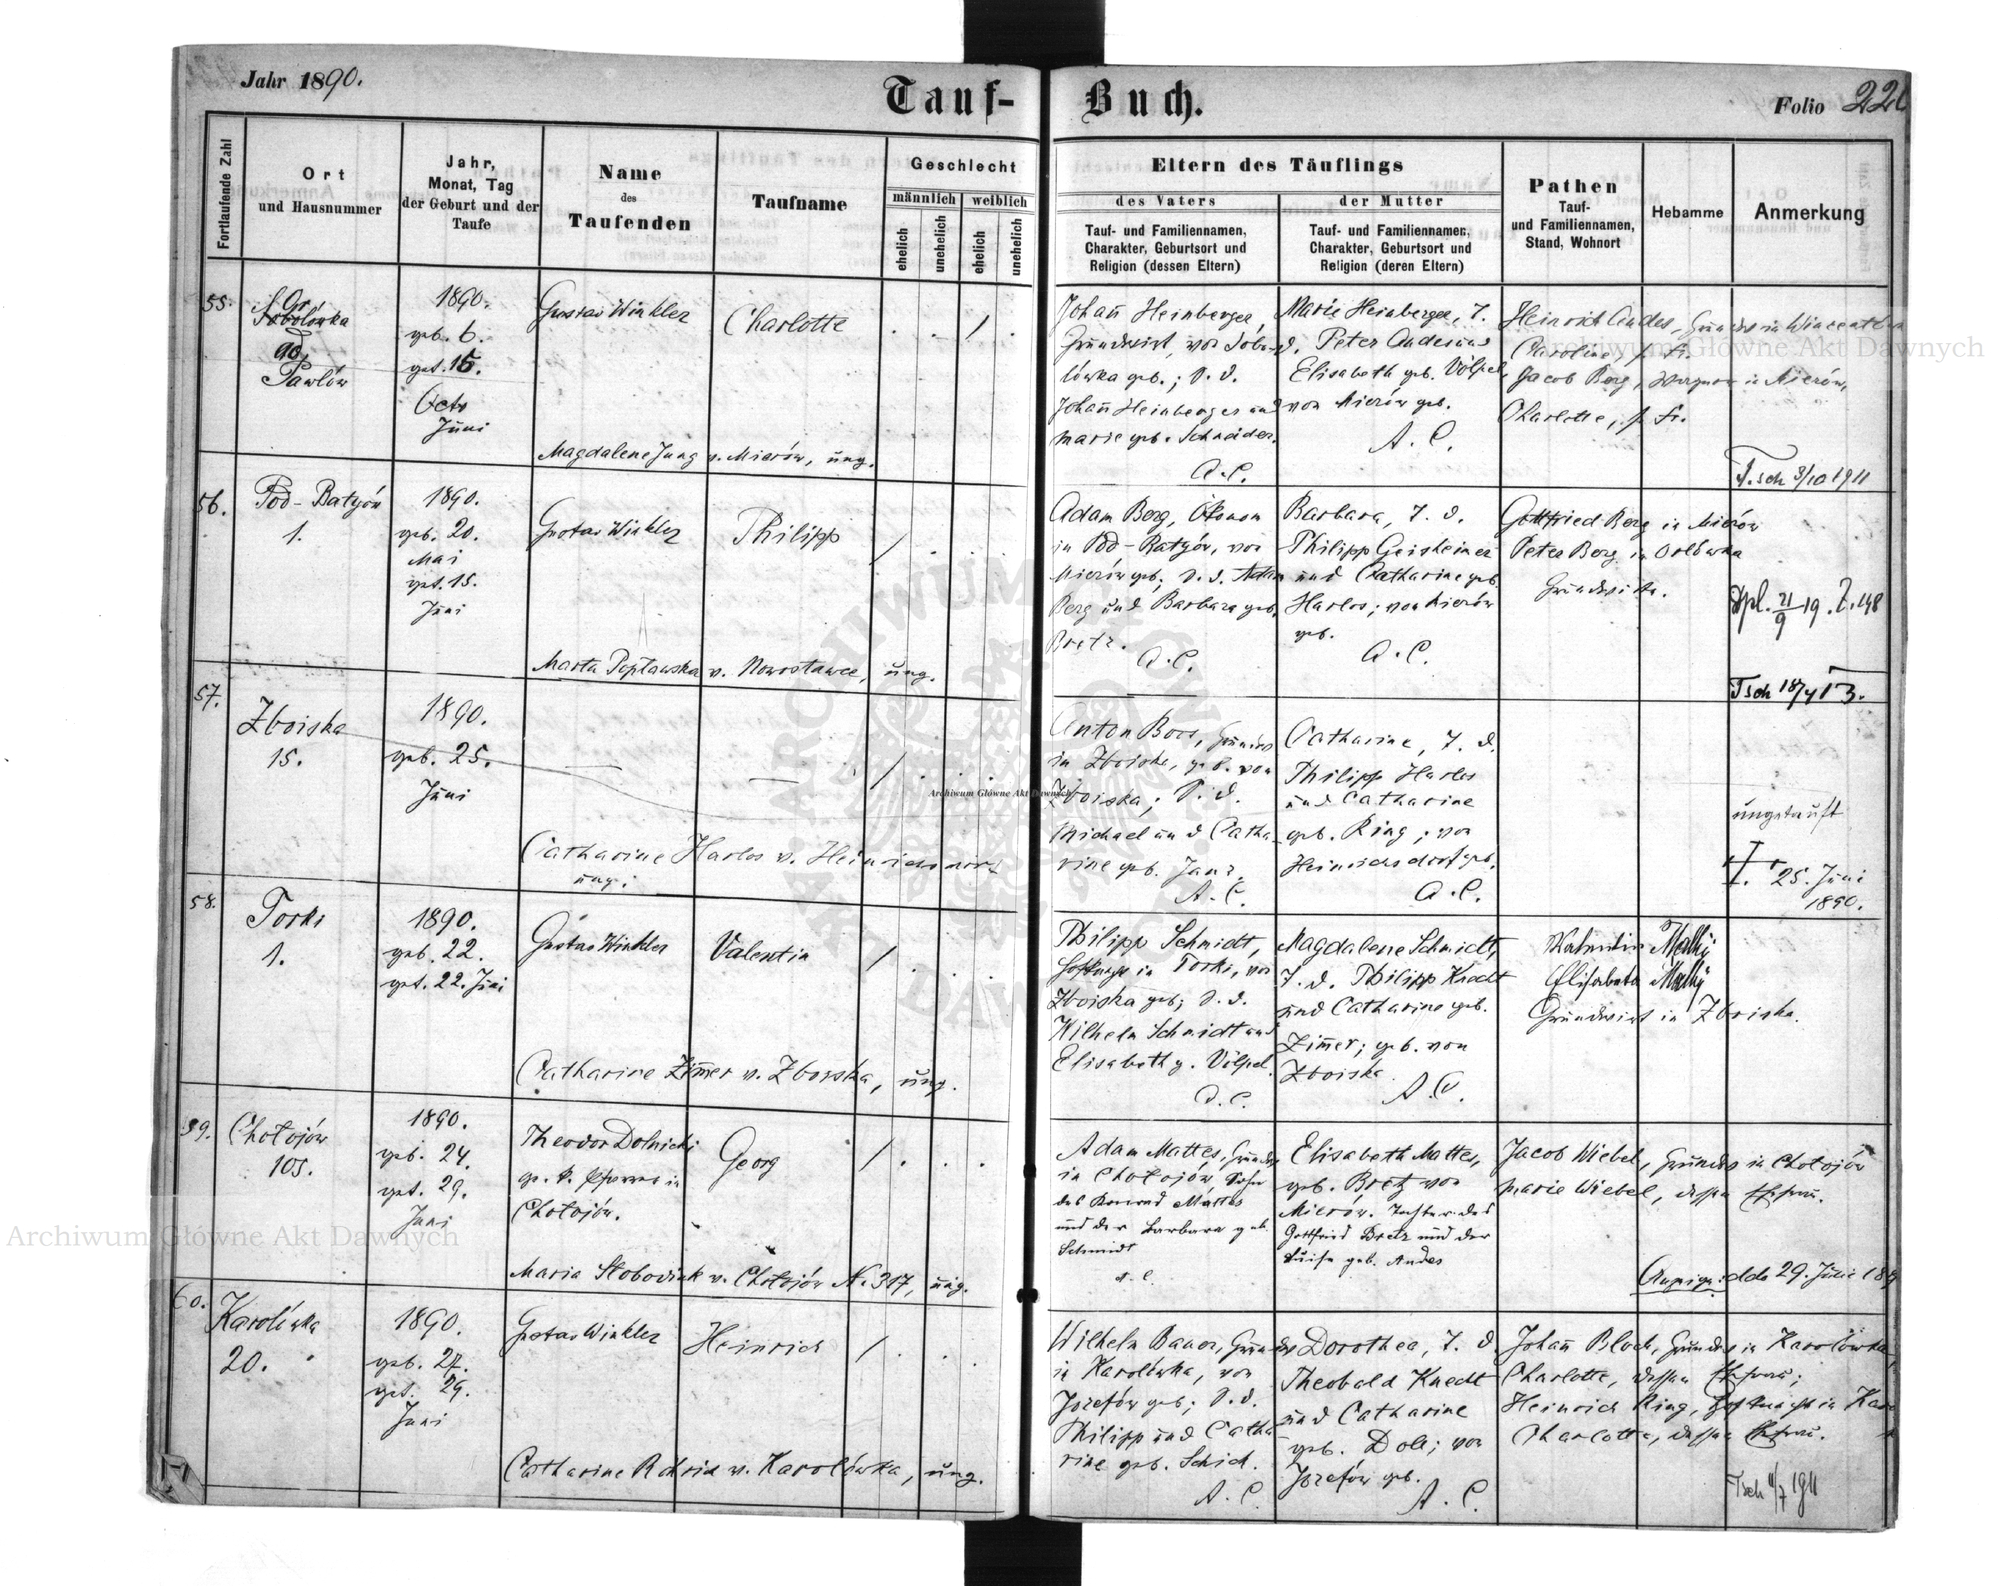 Jahr 1890.
Tauf-Buch.
Folio 22
Fortlaufende Zahl
Ort
und Hausnummer
Jahr,
Monat, Tag
der Geburt und der
Taufe
Name
des
Taufenden
Taufname
Geschlecht
männlich
weiblich
ehelich
unehelich
ehelich
unehelich
Eltern des Täuflings
des Vaters
Tauf- und Familiennamen,
Charakter, Geburtsort und
Religion (dessen Eltern)
der Mutter
Tauf- und Familiennamen,
Charakter, Geburtsort und
Religion (deren Eltern)
Pathen
Tauf-
und Familiennamen,
Stand, Wohnort
Hebamme
Anmerkung
55.
Sobolówka
ad
Pawlów
1890.
geb. 6.
get. 15.
Juni
Gustav Winkler
Charlotte
/
Magdalene Jung v. Mierów, ung.
Johann Heinberger,
Grundwirt, von Sobo-
lówka geb.; S. d.
Johann Heinberger und
Marie geb. Schneider.
A. C.
Marie Heinberger, T.
d. Peter Andes und
Elisabeth geb. Völpel,
von Mierów geb.
A. C.
Heinrich Andes, Grundw. in
Caroline, s. Fr.
Jacob Berg, in Mierów,
Charlotte, s. Fr.
T. sch 3/10 1911
56.
Pod-Batyjów
1.
1890.
geb. 20.
Mai
get. 15.
Juni
Gustav Winkler
Philipp
/
Marta Poptawska v. Nowostawce, ung.
Adam Berg, Ökonom
in Pod-Batyjów, von
Mierów geb; S. d. Adam
Berg und Barbara geb.
Bretz.
A. C.
Barbara, T. d.
Philipp Geisheimer
und Catharine geb.
Harlos; von Mierów
geb.
A. C.
Gottfried Berg in Mierów
Peter Berg in Orlówka
Grundwirte.
Dpl. 21/9 19. Z. 148
57.
Zboiska
15.
1890.
geb. 25.
Juni
/
Catharine Harlos v. Heinrichsdorf
ung.
Anton Boos, Grundw
in Zboiska, geb. von
Zboiska; S. d.
Michael und Catha
rine geb. Janz.
A. C.
Catharine, T. d.
Philipp Harlos
und Catharine
geb. Ring; von
Heinrichsdorf geb.
A. C.
ungetauft
25. Juni
1890.
58.
Torki
1.
1890.
geb. 22.
get. 22. Juni
Gustav Winkler
Valentin
/
Catharine Zimmer v. Zboiska, ung.
Philipp Schmidt,
in Torki, von
Zboiska geb; S. d.
Wilhelm Schmidt und
Elisabeth g. Völpel.
A. C.
Magdalene Schmidt,
T. d. Philipp Knecht
und Catharine geb.
Zimmer; geb. von
Zboiska.
A. C.
Valentin
Elisabeta
Grundwirt in Zboiska.
59.
Chołojów
105.
1890.
geb. 24.
get. 29.
Juni
Theodor Dolnicki
gr. k. Pfarrer in
Chołojów.
Georg
/
Maria v. Chołojów N. 317, ung.
Adam Mattes, Grundw
in Chołojów, Sohn
des Konrad Mattes
und der Barbara geb.
Schmidt
A. C.
Elisabeth Mattes,
geb. Bretz von
Mierów. Tochter des
Gottfried Bretz und der
Luise geb. Andes
Jacob Wiebel, Grundw in Chołojów
Marie Wiebel, dessen Ehefrau.
Anzeige: ddo 29. Juni 18
60.
Karolówka
20.
1890.
geb. 27.
get. 29.
Juni
Gustav Winkler
Heinrich
/
Catharine v. Karolówka, ung.
Wilhelm Bauer, Grund-
in Karolówka, von
Jozefów geb; S. d.
Philipp und Catha
rine geb. Schich.
A. C.
Dorothea, T. d.
Theobald Knecht
und Catharine
geb. Doll; von
Jozefów geb.
A. C.
Johann Bloch, Grundw in Karolówka,
Charlotte, dessen Ehefrau;
Heinrich Ring, in
Charlotte, dessen Ehefrau.
Tsch 11/7 1911
Archiwum Główne Akt Dawnych
Archiwum Główne Akt Dawnych
Archiwum Główne Akt Dawnych